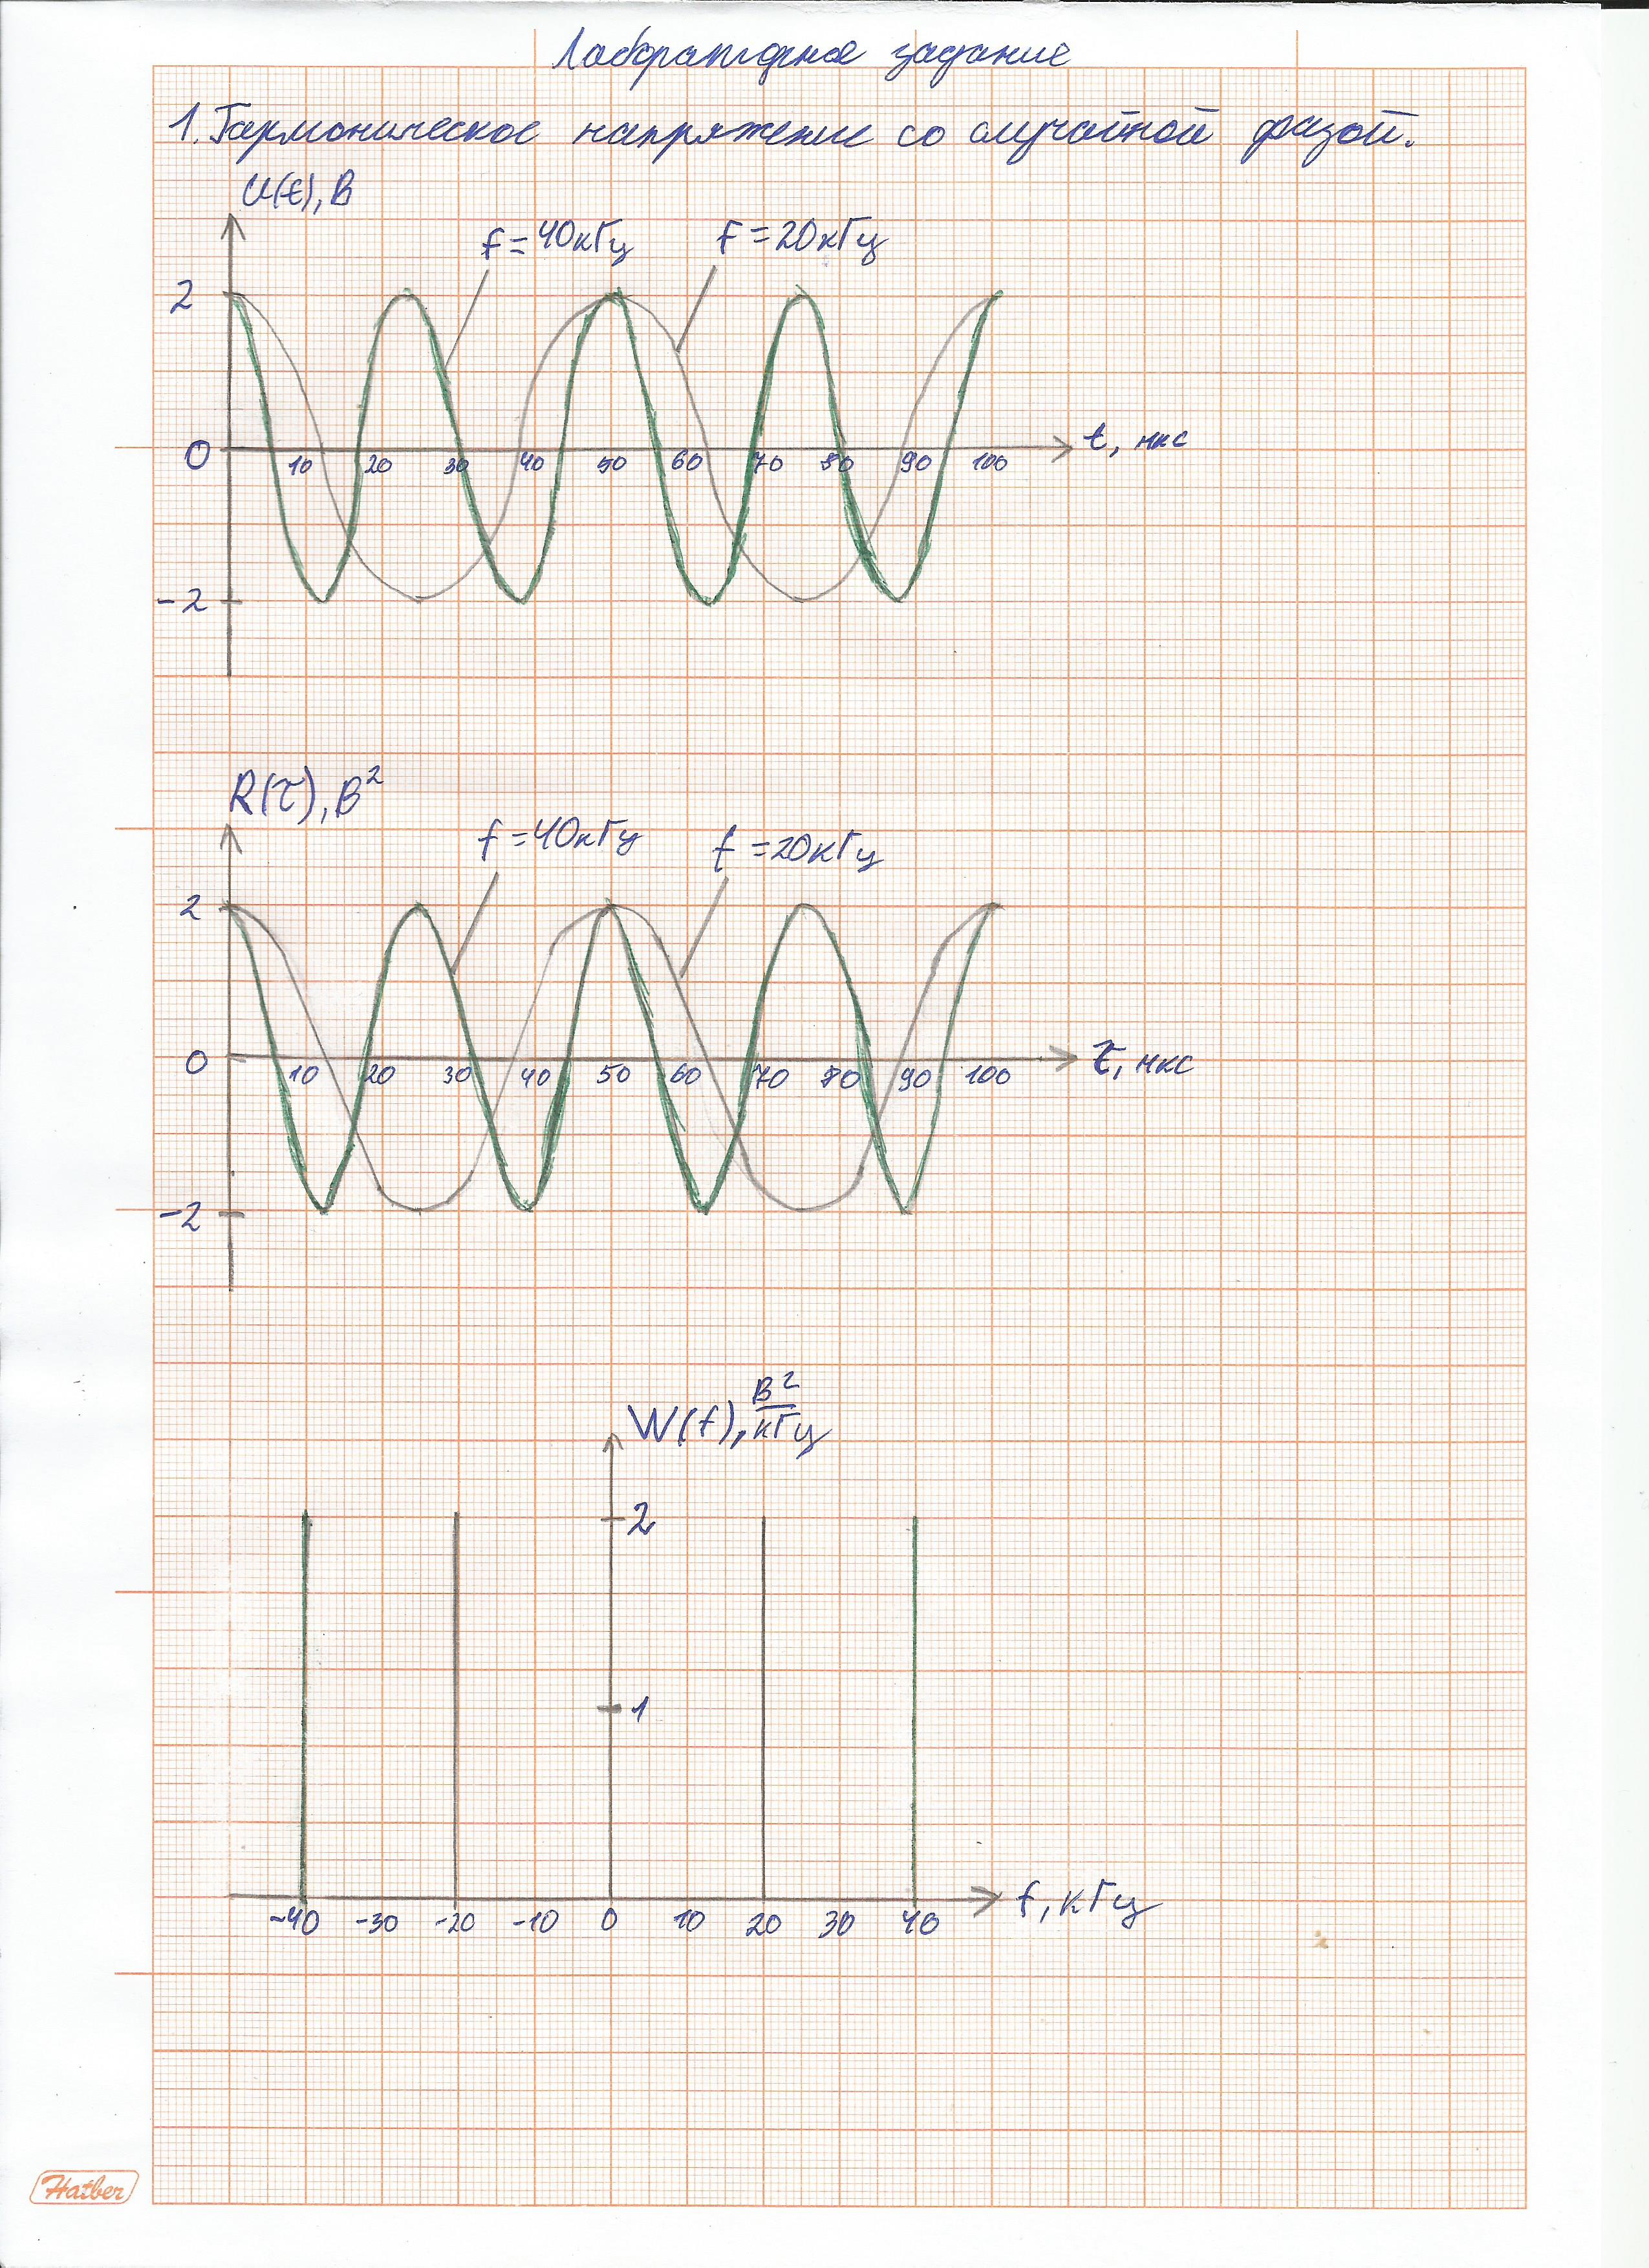 Лабораторное задание
1. Гармоническое напряжение со случайной фазой.
U(t), В
f=40кГц
f=20кГц
2
0
10 20 30 40 50 60 70 80 90 100
t, мкс
-2
R(τ), В²
f=40кГц
f=20кГц
2
0
10 20 30 40 50 60 70 80 90 100
τ, мкс
-2
W(f), В²/кГц
2
1
-40 -30 -20 -10 0 10 20 30 40
f, кГц
Hatber